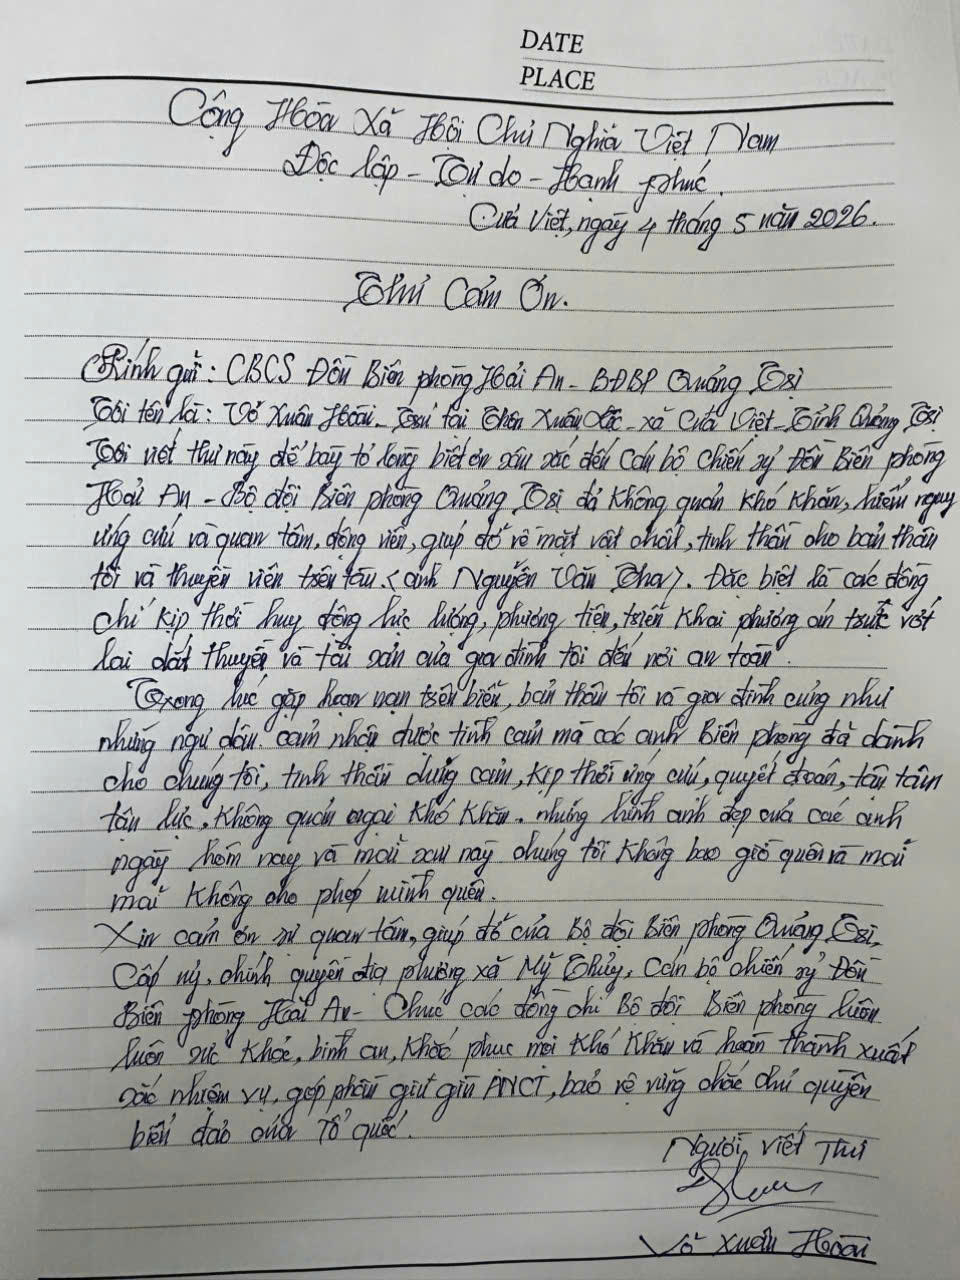 DATE
PLACE
Cộng Hòa Xã Hội Chủ Nghĩa Việt Nam
Độc lập - Tự do - Hạnh phúc.
Cửa Việt, ngày 4 tháng 5 năm 2026.
Thư Cảm Ơn.
Kính gửi: CBCS Đồn Biên phòng Hải An - BĐBP Quảng Trị
Tôi tên là: Võ Xuân Hoài. Trú tại Thôn Xuân Lộc - xã Cửa Việt - Tỉnh Quảng Trị
Tôi viết thư này để bày tỏ lòng biết ơn sâu sắc đến Cán bộ chiến sỹ Đồn Biên phòng
Hải An - Bộ đội Biên phòng Quảng Trị đã không quản khó khăn, hiểm nguy
ứng cứu và quan tâm, động viên, giúp đỡ về mặt vật chất, tinh thần cho bản thân
tôi và thuyền viên trên tàu <anh Nguyễn Văn Tha>. Đặc biệt là các đồng
chí kịp thời huy động lực lượng, phương tiện, triển khai phương án trục vớt
lai dắt thuyền và tài sản của gia đình tôi đến nơi an toàn.
Trong lúc gặp hoạn nạn trên biển, bản thân tôi và gia đình cũng như
những ngư dân cảm nhận được tình cảm mà các anh Biên phòng đã dành
cho chúng tôi, tinh thần dũng cảm, kịp thời ứng cứu, quyết đoán, tận tâm
tận lực, không quản ngại khó khăn. những hình ảnh đẹp của các anh
ngày hôm nay và mai sau này chúng tôi không bao giờ quên và mãi
mãi không cho phép mình quên.
Xin cảm ơn sự quan tâm, giúp đỡ của Bộ đội Biên phòng Quảng Trị,
Cấp uỷ, chính quyền địa phương xã Mỹ Thủy, Cán bộ chiến sỹ Đồn
Biên phòng Hải An - Chúc các đồng chí Bộ đội Biên phòng luôn
luôn sức khỏe, bình an, khắc phục mọi khó khăn và hoàn thành xuất
sắc nhiệm vụ, góp phần giữ gìn ANCT, bảo vệ vững chắc chủ quyền
biển đảo của Tổ quốc.
Người viết Thư
Võ Xuân Hoài